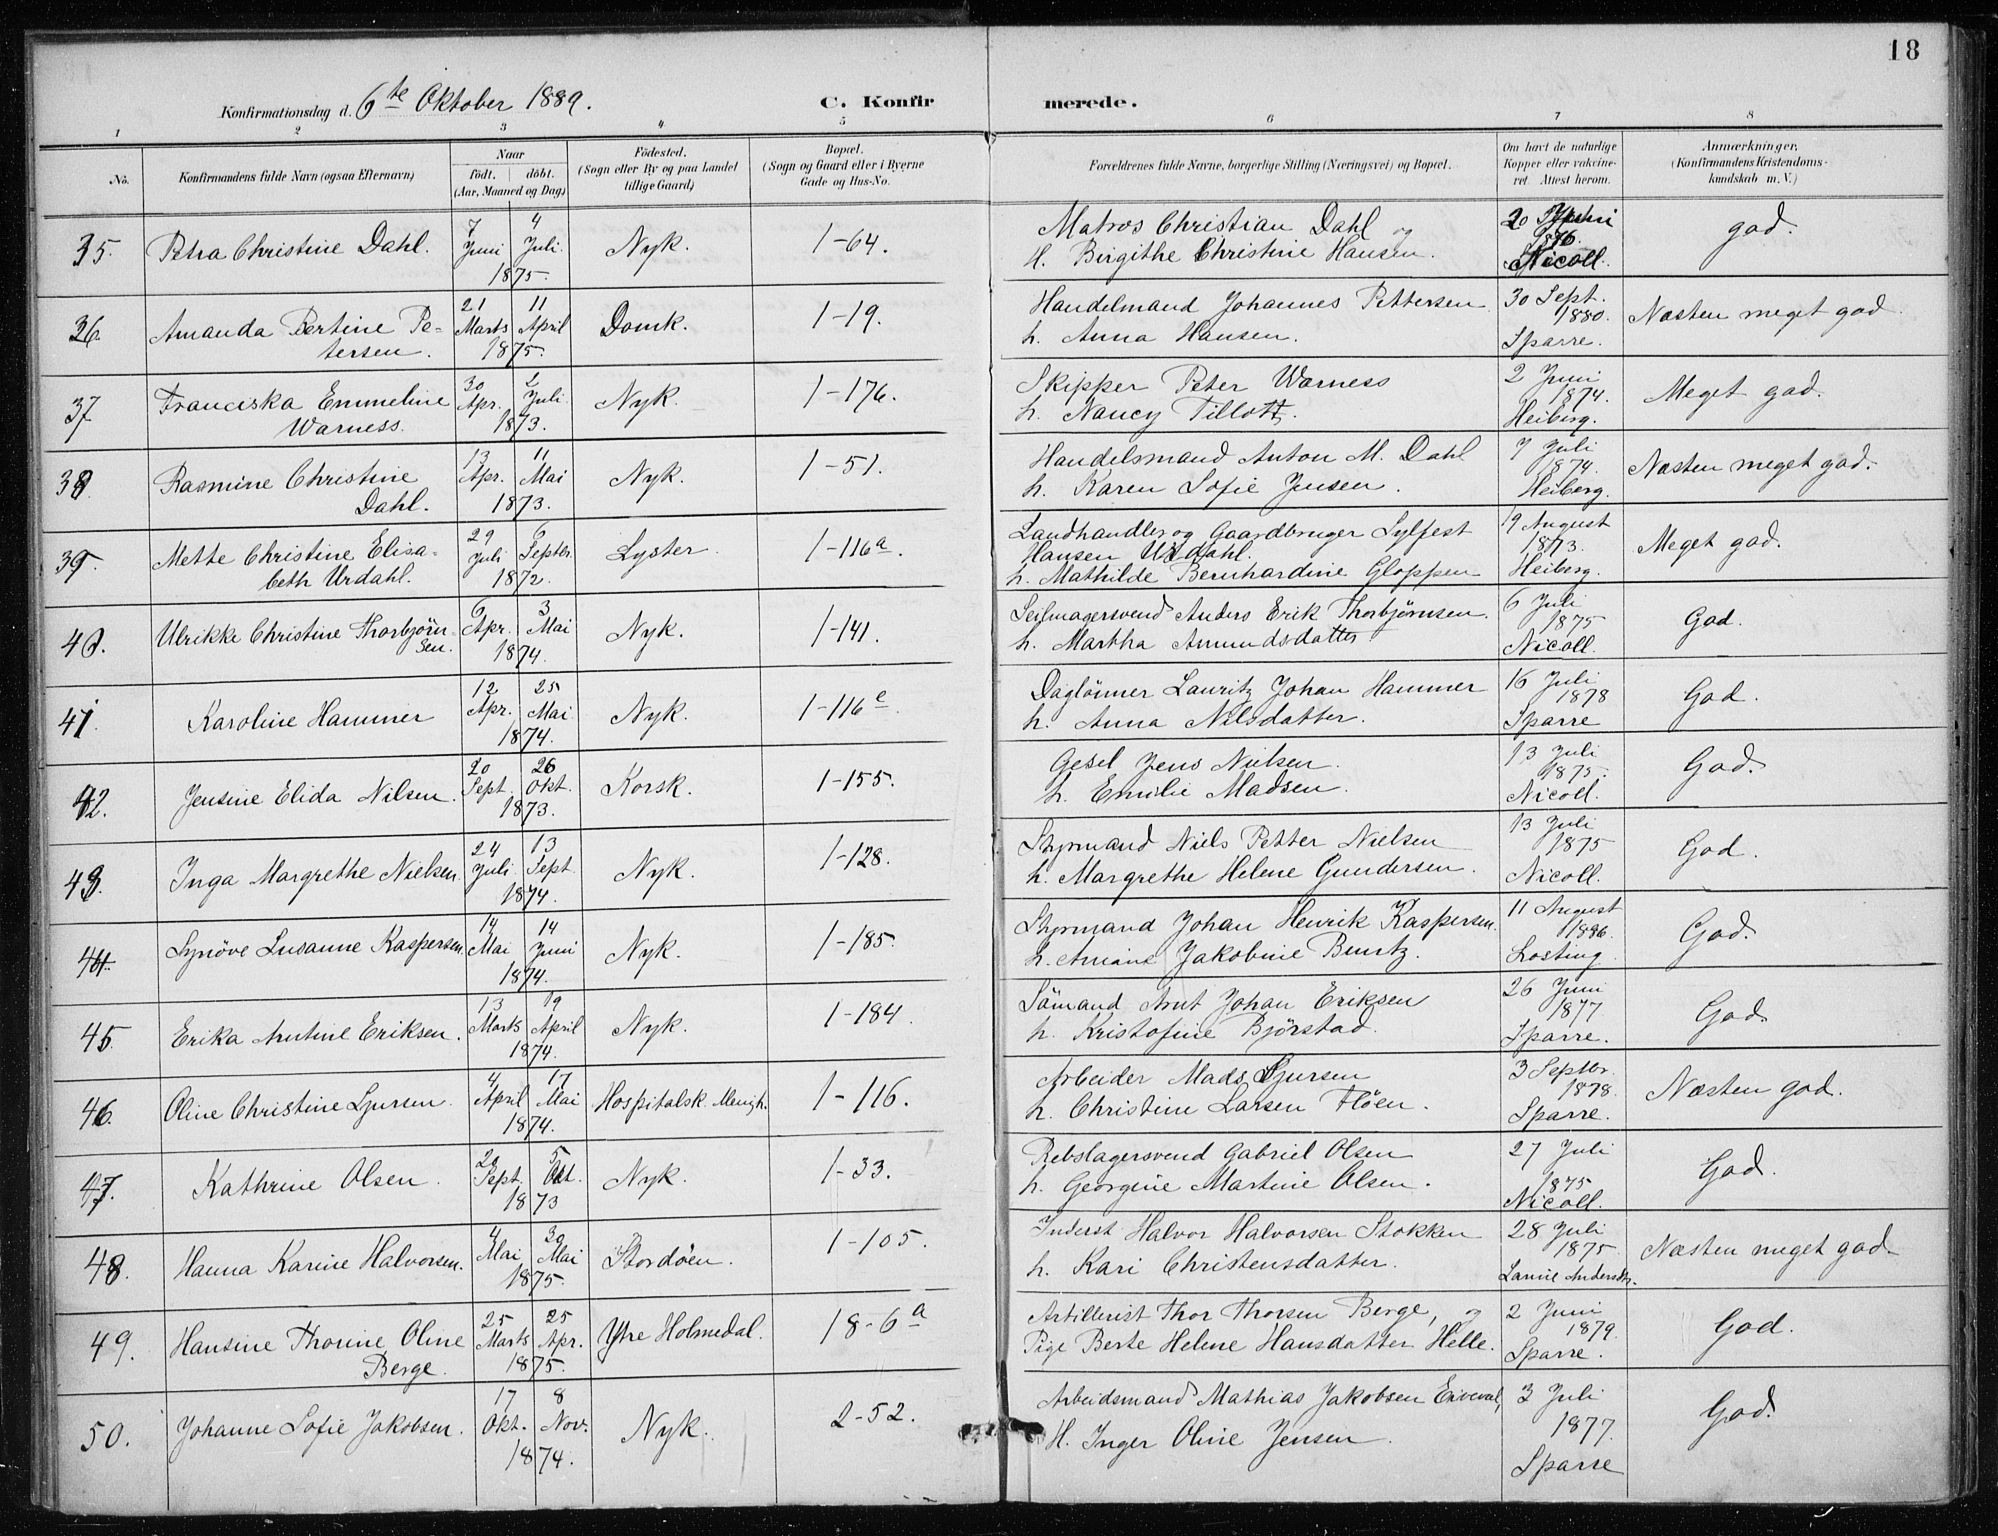 18
Konfirmationsdag d. 6te Oktober 1889.
C. Konfirmerede.
1 2 3 4 5 6 7 8
No.
Konfirmandens fulde Navn (ogsaa Efternavn)
Naar
födt. döbt.
(Aar, Maaned og Dag)
Födested.
(Sogn eller By og paa Landet
tillige Gaard)
Bopæl.
(Sogn og Gaard eller i Byerne
Gade og Hus-No.
Forældrenes fulde Navne, borgerlige Stilling (Næringsvei) og Bopæl.
Om havt de naturlige
Kopper eller vakcine-
ret. Attest herom.
Anmærkninger,
(Konfirmandens Kristendoms-
kundskab m. V.)
35. Petra Christine Dahl. 7 Juni 4 Juli 1875. Nyk. 1-64. Matros Christian Dahl og
H. Birgithe Christine Hansen. 20 1876. Nicoll. god.
36. Amanda Bertine Pe-
tersen. 21 Marts 11 April 1875. Domk. 1-19. Handelmand Johannes Pettersen
h. Anna Hansen. 30 Sept. 1880. Sparre. Næsten meget god.
37 Franciska Emmeline
Warness. 30 Apr. 2 Juli 1873. Nyk. 1-176. Skipper Peter Warness
h. Nancy Tillott. 2 Juni 1874. Heiberg. Meget god.
38. Rasmine Christine
Dahl. 13 Apr. 11 Mai 1873. Nyk. 1-51. Handelsmand Anton M. Dahl
h. Karen Sofie Jensen. 7 Juli 1874. Heiberg. Næsten meget god.
39. Mette Christine Elisa-
beth Urdahl. 29 Juli 6 Septbr. 1872. Lyster. 1-116a. Landhandler og Gaardbruger Sylfest
Hansen Urdahl.
h. Mathilde Bernhardine Gloppen 19 August 1873. Heiberg. Meget god.
40. Ulrikke Christine Thorbjörn-
sen. 6 Apr. 3 Mai 1874. Nyk. 1-141. Seilmagersvend Anders Erik Thorbjørnsen.
h. Martha Amundsdatter 6 Juli 1875 Nicoll. God.
41. Karoline Hammer 12 Apr. 25 Mai 1874. Nyk. 1-116c. Daglönner Lauritz Johan Hammer
h. Anna Nilsdatter. 16 Juli 1878 Sparre God.
42. Jensine Elida Nilsen. 20 Sept. 26 Okt. 1873. Korsk. 1-155. Gesel Jens Nielsen.
h. Emilie Madsen. 13 Juli 1875. Nicoll. God.
43. Inga Margrethe Nielsen. 24 Juli 13 Sept. 1874. Nyk. 1-128. Styrmand Niels Petter Nielsen
h. Margrethe Helene Gundersen. 13 Juli 1875 Nicoll. God.
44. Synöve Susanne Kaspersen 14 Mai 14 Juni 1874. Nyk. 1-185. Styrmand Johan Henrik Kaspersen.
h. Jakobine 11 August 1886. Losting. God.
45. Erika Arntine Eriksen. 13 Marts 19 April 1874. Nyk. 1-184. Sömand Arnt Johan Eriksen
h. Kristofine Bjørstad. 26 Juni 1877. Sparre. God.
46 Oline Christine Sjursen. 4 April 17 Mai 1874. Hospitalsk. Menigh. 1-116. Arbeider Mads Sjursen
h. Christine Larsen Flöen. 3 Septbr. 1878. Sparre. Næsten god.
47. Kathrine Olsen. 20 Sept. 5 Okt. 1873 Nyk. 1-33. Rebslagersvend Gabriel Olsen
h. Georgine Martine Olsen. 27 Juli 1875 Nicoll. God.
48. Hanna Karine Halvorsen. 4 Mai 30 Mai 1875. Stordöen. 1-105. Inderst Halvor Halvorsen Stokken
h. Kari Christensdatter. 28 Juli 1875 Næsten meget god.
49. Hansine Thorine Oline
Berge. 25 Marts 25 Apr. 1875. Ytre Holmedal. 18-6a Artillerist Thor Thorsen Berge, og
Pige Berte Helene Hansdatter Helle. 2 Juni 1879. Sparre. God.
50. Johanne Sofie Jakobsen. 17 Okt. 8 Nov. 1874. Nyk. 2-52. Arbeidsmand Mathias Jakobsen
H. Inger Oline Jensen. 3 Juli 1877. Sparre God.